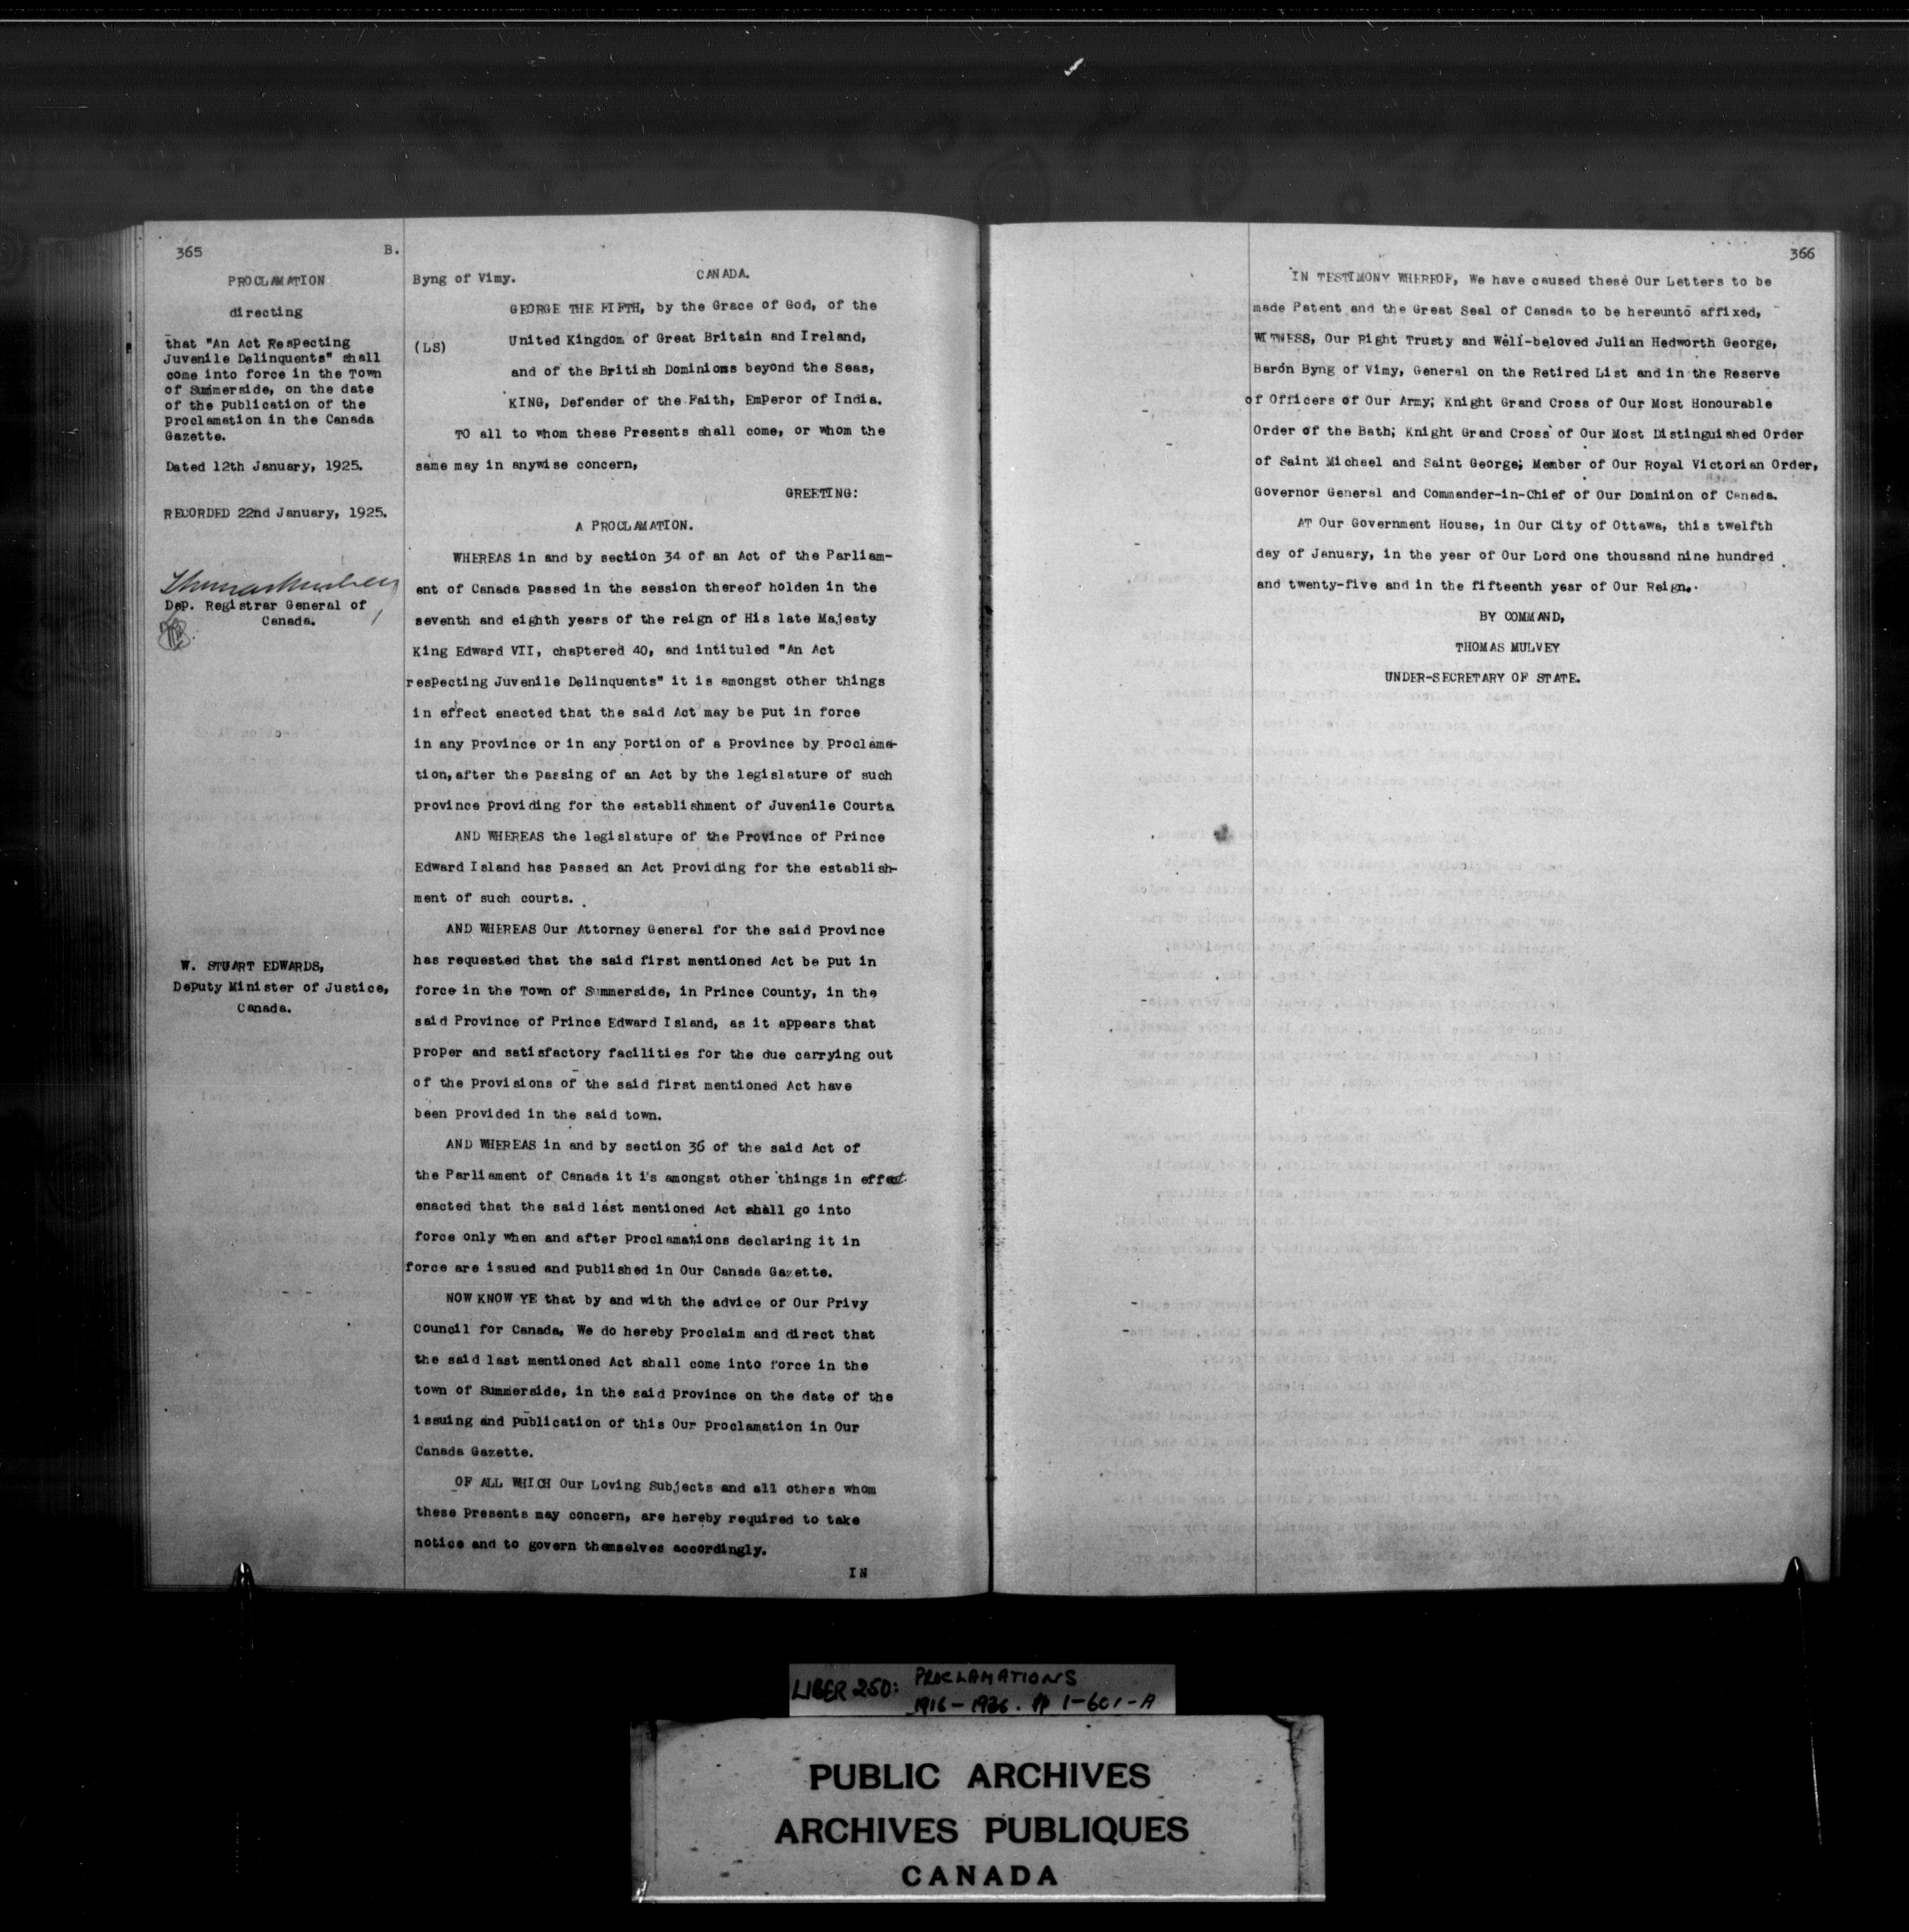 365 B.
PROCLAMATION
directing
that "An Act Respecting
Juvenile Delinquents" shall
come into force in the Town
of Summerside, on the date
of the publication of the
proclamation in the Canada
Gazette.
Dated 12th January, 1925.
RECORDED 22nd January, 1925.
Thomas Mulvey
Dep. Registrar General of
Canada.
W. STUART EDWARDS,
Deputy Minister of Justice,
Canada.
Byng of Vimy. CANADA.
GEORGE THE FIFTH, by the Grace of God, of the
(LS) United Kingdom of Great Britain and Ireland,
and of the British Dominions beyond the Seas,
KING, Defender of the Faith, Emperor of India.
TO all to whom these Presents shall come, or whom the
same may in anywise concern,
GREETING:
A PROCLAMATION.
WHEREAS in and by section 34 of an Act of the Parliam-
ent of Canada passed in the session thereof holden in the
seventh and eighth years of the reign of His late Majesty
King Edward VII, chaptered 40, and intituled "An Act
respecting Juvenile Delinquents" it is amongst other things
in effect enacted that the said Act may be put in force
in any province or in any portion of a Province by Proclama-
tion, after the passing of an Act by the legislature of such
province providing for the establishment of Juvenile Courts
AND WHEREAS the legislature of the Province of Prince
Edward Island has passed an Act providing for the establish-
ment of such courts.
AND WHEREAS Our Attorney General for the said province
has requested that the said first mentioned Act be put in
force in the Town of Summerside, in Prince County, in the
said Province of Prince Edward Island, as it appears that
proper and satisfactory facilities for the due carrying out
of the provisions of the said first mentioned Act have
been provided in the said town.
AND WHEREAS in and by section 36 of the said Act of
the Parliament of Canada it is amongst other things in effect
enacted that the said last mentioned Act shall go into
force only when and after proclamations declaring it in
force are issued and published in Our Canada Gazette.
NOW KNOW YE that by and with the advice of Our Privy
Council for Canada, We do hereby proclaim and direct that
the said last mentioned Act shall come into force in the
town of Summerside, in the said province on the date of the
issuing and publication of this Our proclamation in Our
Canada Gazette.
OF ALL WHICH Our Loving Subjects and all others whom
these Presents may concern, are hereby required to take
notice and to govern themselves accordingly.
IN
366
IN TESTIMONY WHEREOF, We have caused these Our Letters to be
made Patent and the Great Seal of Canada to be hereunto affixed,
WITNESS, Our Right Trusty and Well-beloved Julian Hedworth George,
Baron Byng of Vimy, General on the Retired List and in the Reserve
of Officers of Our Army; Knight Grand Cross of Our Most Honourable
Order of the Bath; Knight Grand Cross of Our Most Distinguished Order
of Saint Michael and Saint George; Member of Our Royal Victorian Order,
Governor General and Commander-in-Chief of Our Dominion of Canada.
AT Our Government House, in Our City of Ottawa, this twelfth
day of January, in the year of Our Lord one thousand nine hundred
and twenty-five and in the fifteenth year of Our Reign.
BY COMMAND,
THOMAS MULVEY
UNDER-SECRETARY OF STATE.
LIBER 250: PROCLAMATIONS
1916-1926. pp 1-601-A
PUBLIC ARCHIVES
ARCHIVES PUBLIQUES
CANADA